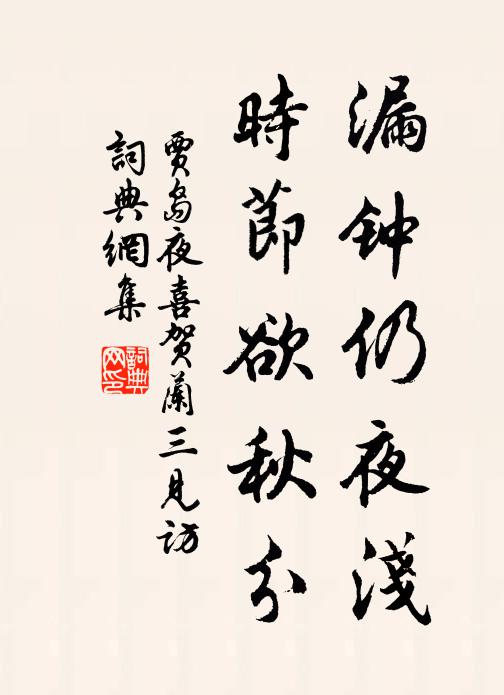 漏钟仍夜淺
時節欲秋分
賈島夜喜贺蘭三見访
詞典網集
詞典网印